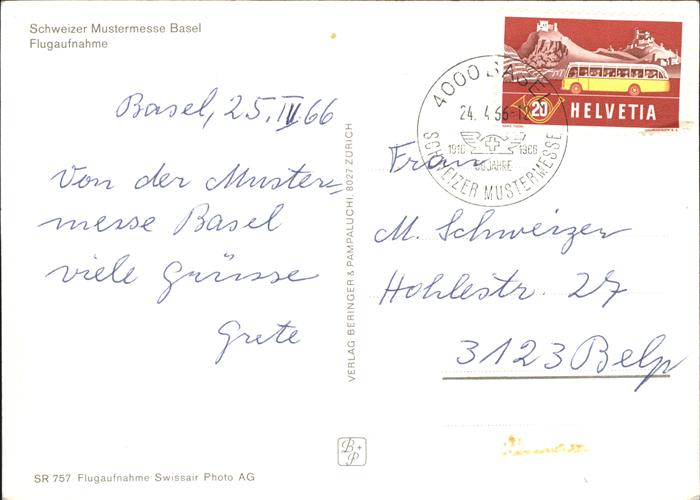 Schweizer Mustermesse Basel
Flugaufnahme
Basel, 25. IV 66
Von der Muster=
messe Basel
viele Grüsse
Grete
SR 757 Flugaufnahme Swissair Photo AG
VERLAG BERINGER & PAMPALUCHI, 8027 ZÜRICH
B+P
4000 BASEL
24. 4.66-12
1916 1966
50 JAHRE
SCHWEIZER MUSTERMESSE
20 HELVETIA
Frau
M. Schweizer
Hohlestr. 27
3123 Belp